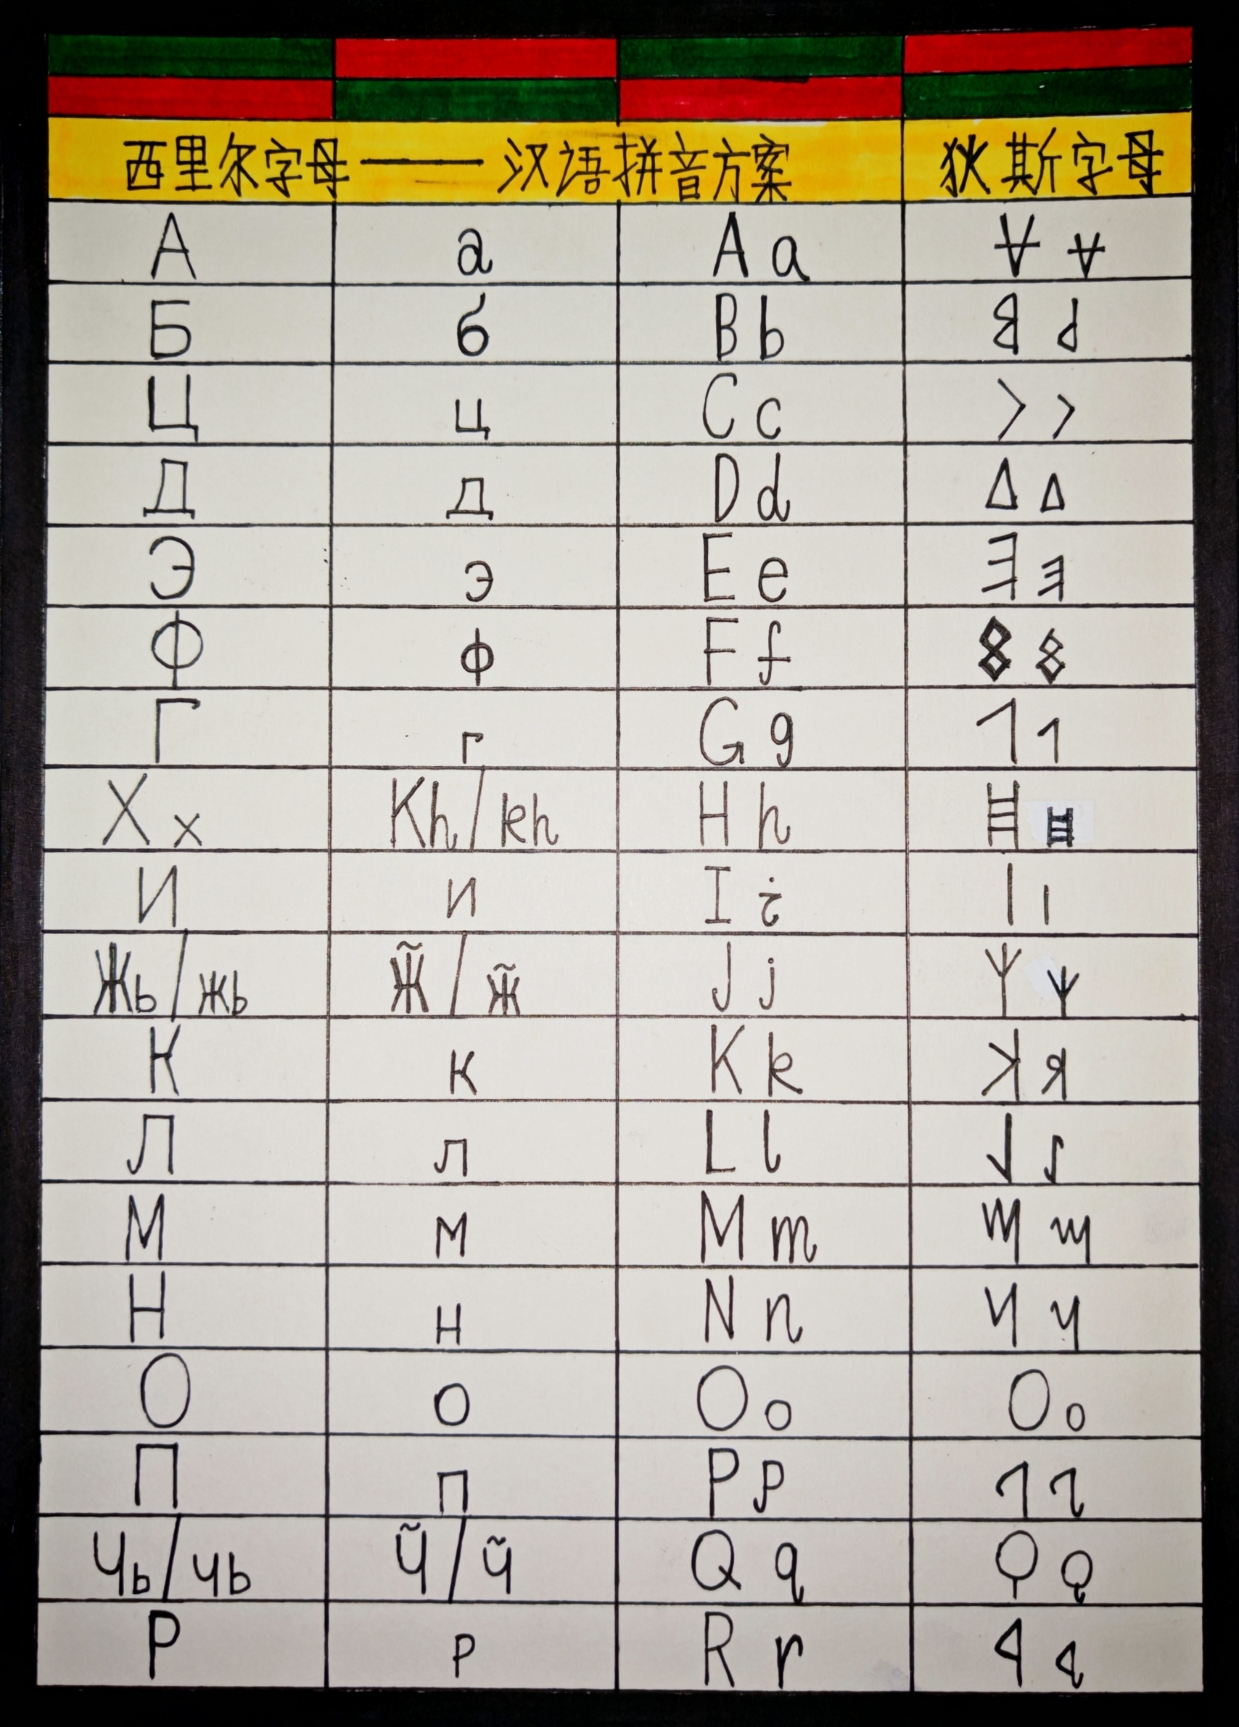 西里尔字母——汉语拼音方案 狄斯字母
А а A a Ɐ ɐ
Б б B b
Ц ц C c
Д д D d Δ Δ
Э э E e Ǝ ǝ
Ф ф F f 8 8
Г г G g 1 1
Х х Kh/kh H h
И и I i | ı
Жь/жь Ж̃/ж̃ J j
К к K k
Л л L l
М м M m
Н н N n Ч ч
О о O o O o
П п P p
Чь/чь Ч̃/ч̃ Q q
Р р R r